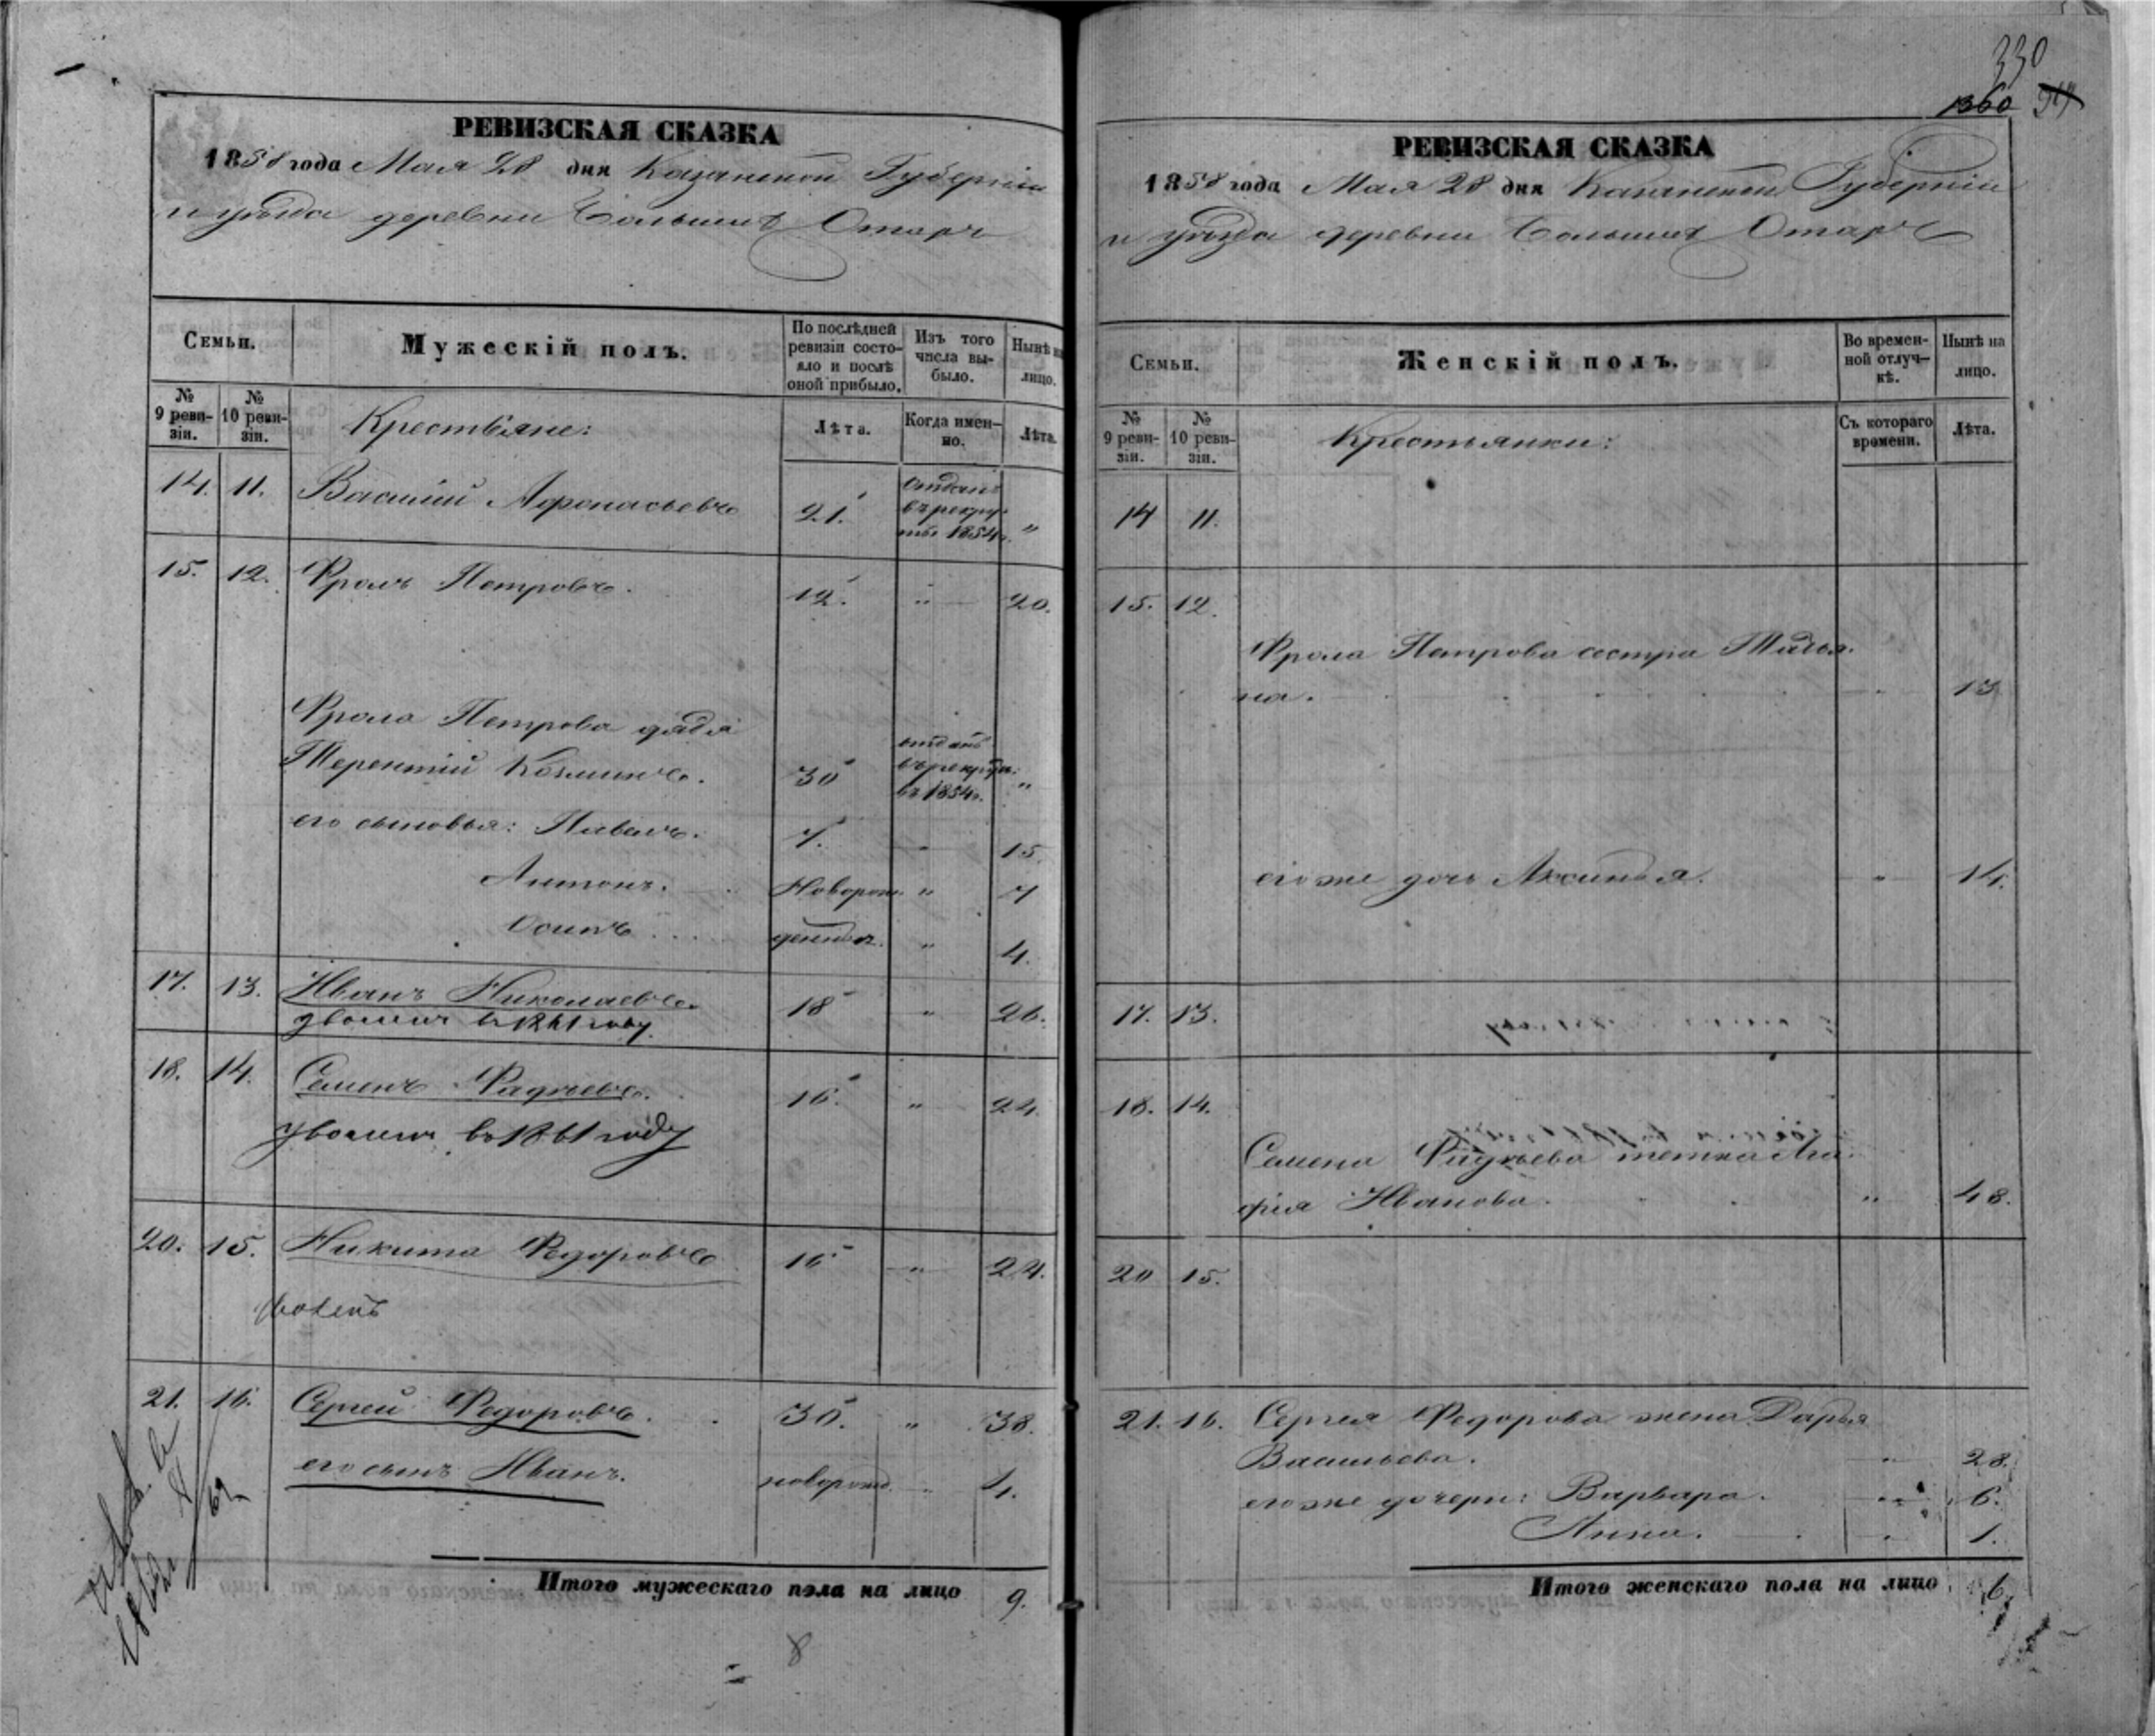 РЕВИЗСКАЯ СКАЗКА
1858 года Мая 28 дня Казанской Губерніи
и уѣзда деревни Большихъ Отаръ
Семьи.
Мужескій полъ.
По послѣдней ревизіи состояло и послѣ оной прибыло.
Изъ того числа выбыло.
Нынѣ на лицо.
№ 9 ревизіи.
№ 10 ревизіи.
Крестьяне:
Лѣта.
Когда именно.
Лѣта.
14. 11. Василій Афонасьевъ 21. отданъ въ рекруты 1854г. "
15. 12. Фролъ Петровъ. 12. " 20.
Фрола Петрова дядя
Терентій Козминъ. 30 отданъ въ рекруты въ 1854г. "
его сыновья: Павелъ. 7. " 15.
Антонъ. Новорож " 7
Осипъ денные " 4.
17. 13. Иванъ Николаевъ. 18 " 26.
уволенъ въ 1861 году.
18. 14. Семенъ Фадѣевъ. 16. " 24.
уволенъ въ 1861 году
20. 15. Никита Федоровъ 16 " 24.
уволенъ
21. 16. Сергей Федоровъ. 30. " 38.
его сынъ Иванъ. новорожд. " 4.
Итого мужескаго пола на лицо 9.
8
330
1360
РЕВИЗСКАЯ СКАЗКА
1858 года Мая 28 дня Казанской Губерніи
и уѣзда деревни Большихъ Отаръ
Семьи.
Женскій полъ.
Во временной отлучкѣ.
Нынѣ на лицо.
№ 9 ревизіи.
№ 10 ревизіи.
Крестьянки:
Съ котораго времени.
Лѣта.
14 11.
15. 12.
Фрола Петрова сестра Татья-
на. " 13
его же дочь Аксинья. " 14.
17. 13.
18. 14.
Семена Фадѣева тетка Ага-
фія Иванова. " 48.
20 15.
21. 16. Сергея Федорова жена Дарья
Васильева. " 28.
его же дочери: Варвара. " 6.
Анна. " 1.
Итого женскаго пола на лицо 6.